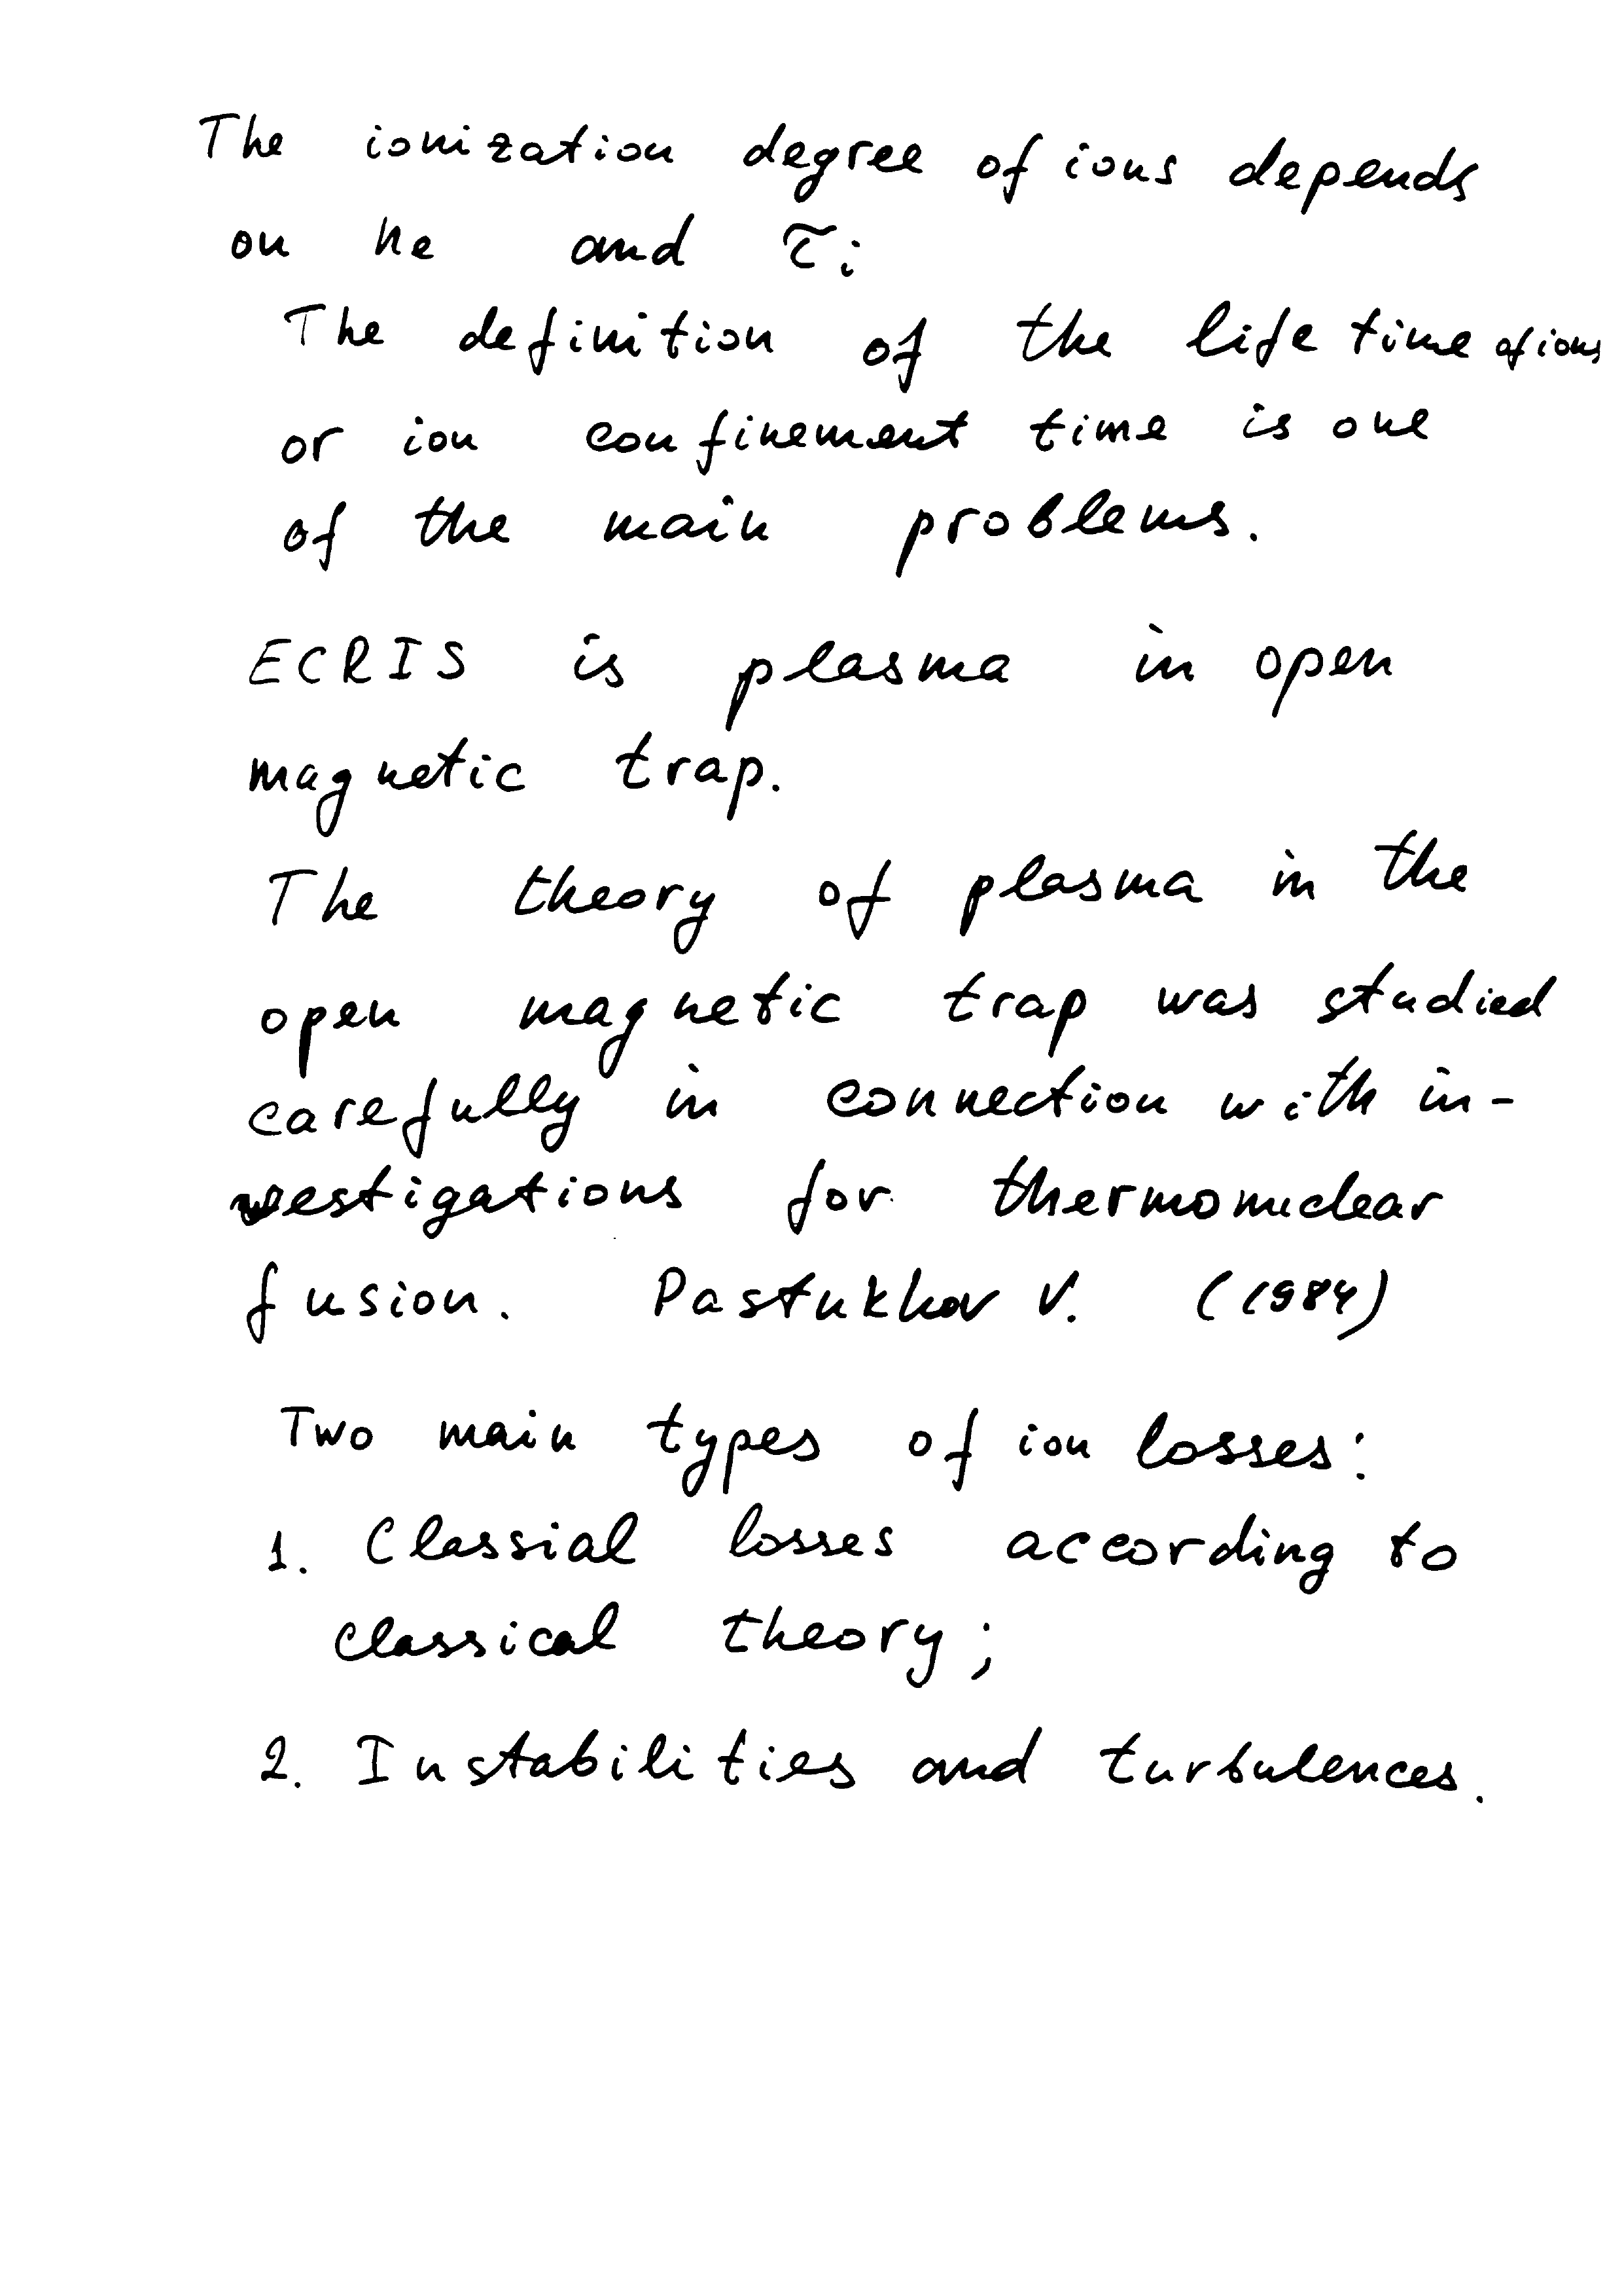 The ionization degree of ions depends
on ne and τi
The definition of the life time of ions
or ion confinement time is one
of the main problems.
ECRIS is plasma in open
magnetic trap.
The theory of plasma in the
open magnetic trap was studied
carefully in connection with in-
vestigations for thermonuclear
fusion. Pastukhov V. (1984)
Two main types of ion losses:
1. Classial losses according to
classical theory;
2. Instabilities and turbulences.